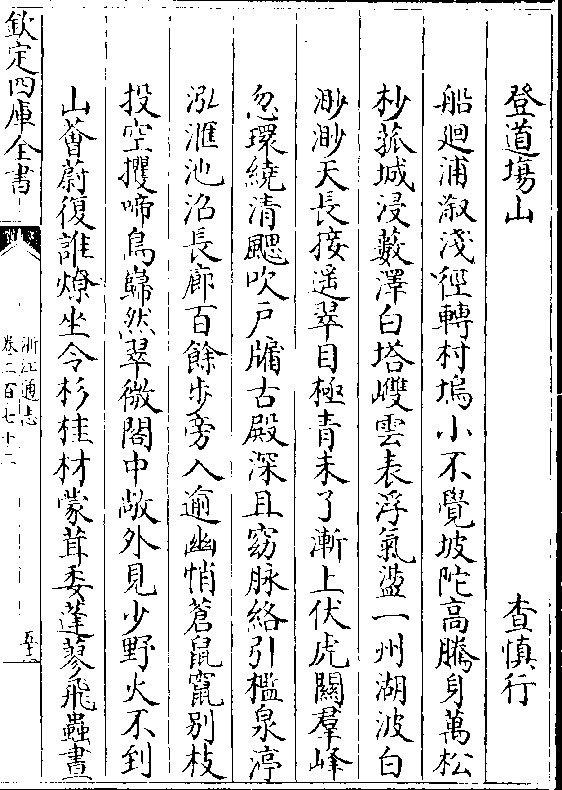 登道場山　查慎行
船廻浦漵淺徑轉村塢小不覺坡陀高騰身萬松
杪菰城浸藪澤白塔㕠雲表浮氣盪一州湖波白
渺渺天長接遥翠目極青未了漸上伏虎關羣峰
忽環繞清颸吹戸牖古殿深且窈脉絡引檻泉渟
泓滙池沼長廊百餘歩旁入逾幽悄蒼鼠竄别枝
投空攫啼鳥巋然翠微閣中敞外見少野火不到
山薈蔚復誰燎坐令杉桂材蒙茸委蓬蓼飛蟲書
欽定四庫全書
浙江通志
卷二百七十二